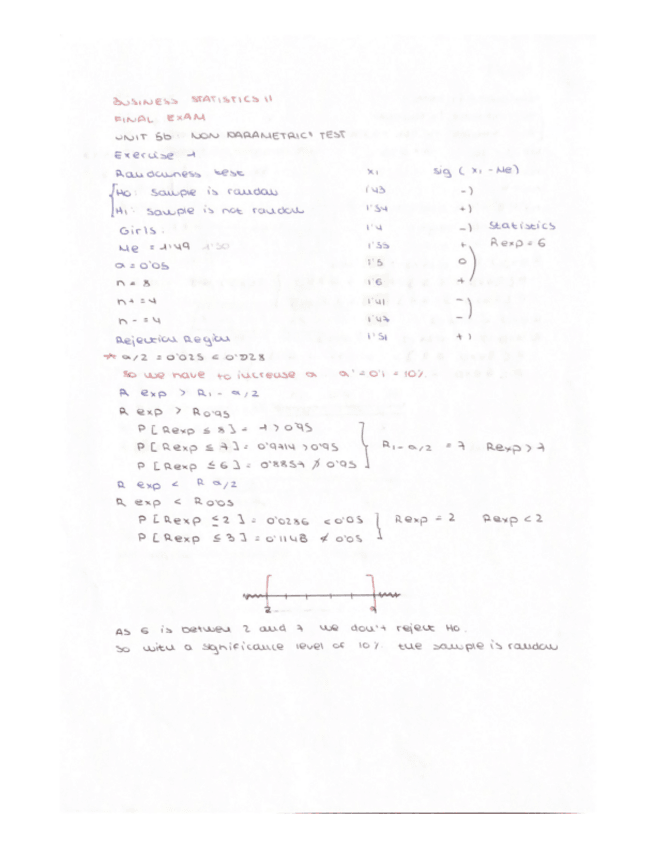 BUSINESS STATISTICS II
FINAL EXAM
UNIT 5b NON PARAMETRICS TEST
Exercise 1
Randowness test xi sig ( xi - Me)
Ho: sample is randow 1'43 -)
H1: sample is not randow 1'54 +)
Girls: 1'4 -) Statistics
Me = 1'49 1'50 1'55 + Rexp = 6
a = 0'05 1'5 0
n = 8 1'6 +
n+ = 4 1'41 -
n- = 4 1'47 -
Rejection Region 1'51 +)
* a/2 = 0'025 < 0'028
So we have to increase a a' = 0'1 = 10%
R exp > R1-a/2
R exp > R0'95
P [Rexp ≤ 8] = 1 > 0'95
P [Rexp ≤ 7] = 0'9714 > 0'95 R1-a/2 = 7 Rexp > 7
P [Rexp ≤ 6] = 0'8857 ≯ 0'95
R exp < R a/2
R exp < R0'05
P [Rexp ≤ 2] = 0'0286 < 0'05 Rexp = 2 Rexp < 2
P [Rexp ≤ 3] = 0'1143 ≮ 0'05
2
As 6 is between 2 and 7 we don't reject Ho.
So with a significance level of 10% the sample is randow